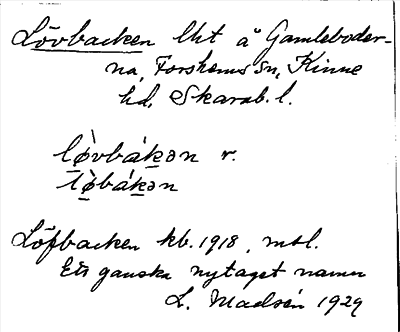 Lövbacken lht å Gamleboder-
na, Forshems sn, Kinne
hd, Skarab. l.
lø̀vbákən r.
lø̀bákən
Löfbacken kb. 1918, msl.
Ett ganska nytaget namn
L. Madsén 1929